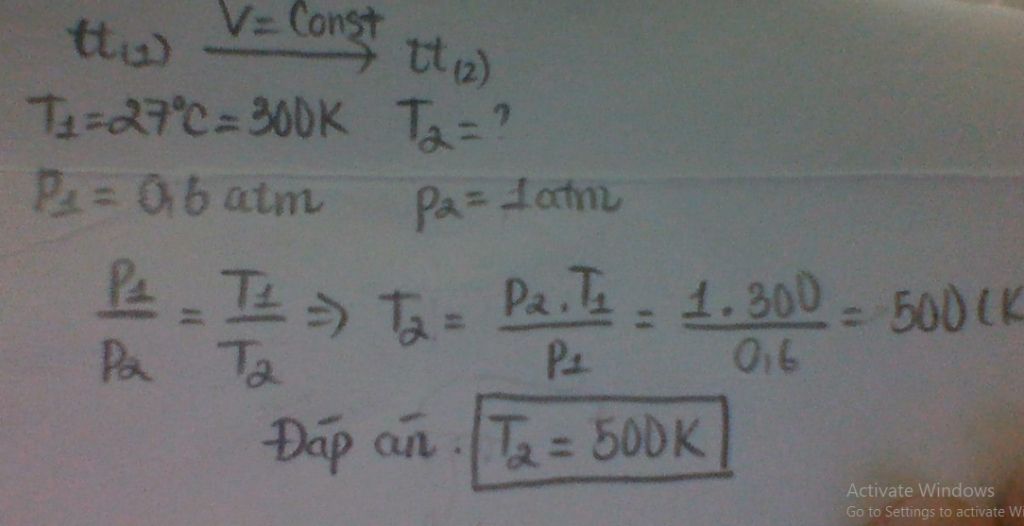 tt(1) V = Const → tt(2)
T1 = 27°C = 300K T2 = ?
P1 = 0,6 atm P2 = 1atm
P1/P2 = T1/T2 ⇒ T2 = P2.T1/P1 = 1.300/0,6 = 500(K
Đáp án. T2 = 500K
Activate Windows
Go to Settings to activate Wi